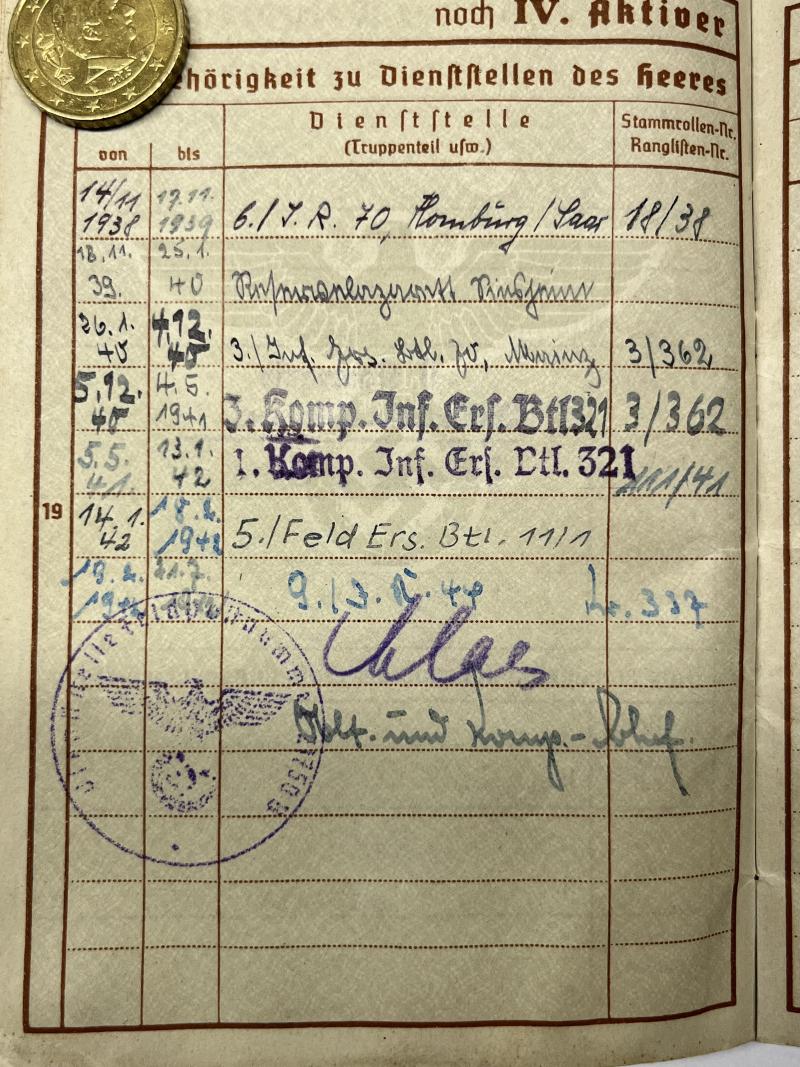 noch IV. Aktiver
ehörigkeit zu Dienststellen des Heeres
von bis Dienststelle (Truppenteil usw.) Stammrollen-Nr. Ranglisten-Nr.
14/11 1938 17.11. 1939 6./J.R. 70, Homburg/Saar 18/38
18.11. 39. 25.1. 40 Reservelazarett Sinsheim
26.1. 40 4.12. 40 3./Inf. Ers. Btl. Mainz 3/362
5.12. 40 4.5. 1941 3. Komp. Inf. Ers. Btl 321 3/362
5.5. 41. 13.1. 42 1. Komp. Inf. Ers. Btl. 321 /41
19
14.1. 42 18.2. 1942 5./Feld Ers. Btl. 11/1
19.2. 1942 21.7. 9./J.R. 44 Nr. 337
Oblt. und Komp.-Chef.